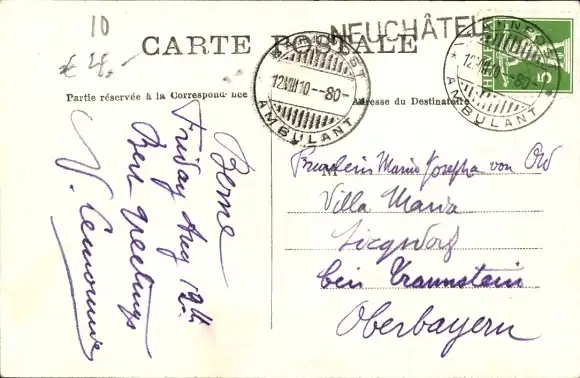 10
NEUCHÂTEL
CARTE POSTALE
BAHNPOST
12.VIII.10--80
AMBULANT
BAHNPOST
12.VIII.10--80
AMBULANT
5
Partie réservée à la Correspondance
Adresse du Destinataire
Berne
Friday Aug 12th
Best greetings
Fraulein Maria Josepha von Ow
Villa Maria
Siegsdorf
bei Traunstein
Oberbayern